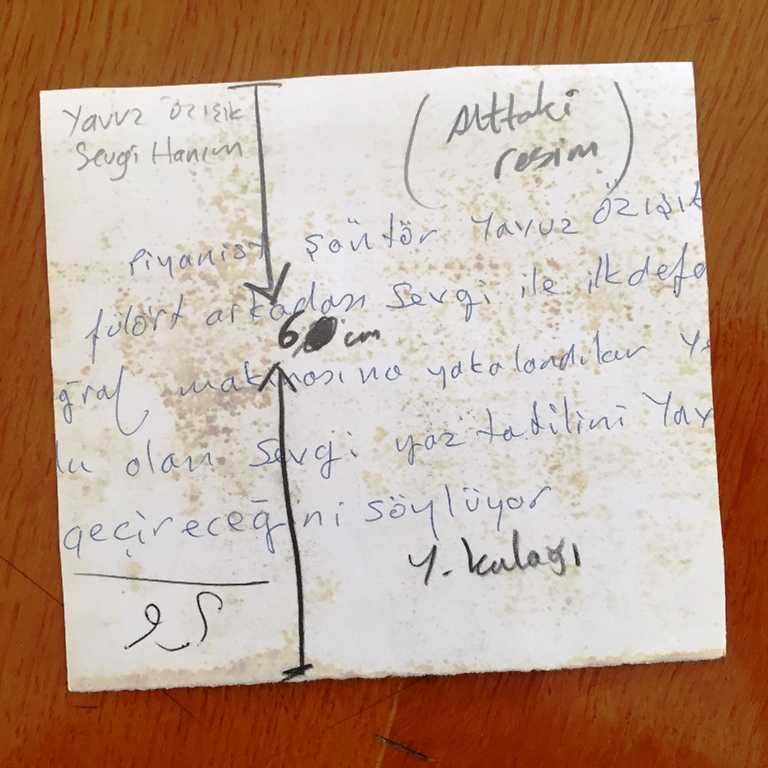 Yavuz Özışık
Sevgi Hanım
(Alttaki
resim)
Piyanist Şantör Yavuz Özışık
fülört arkadaşı Sevgi ile ilkdefa
ğraf makinasına yakalandılar
olan Sevgi yaz tatilini Yav
geçireceğini söylüyor
6 cm
Y. Kulağı